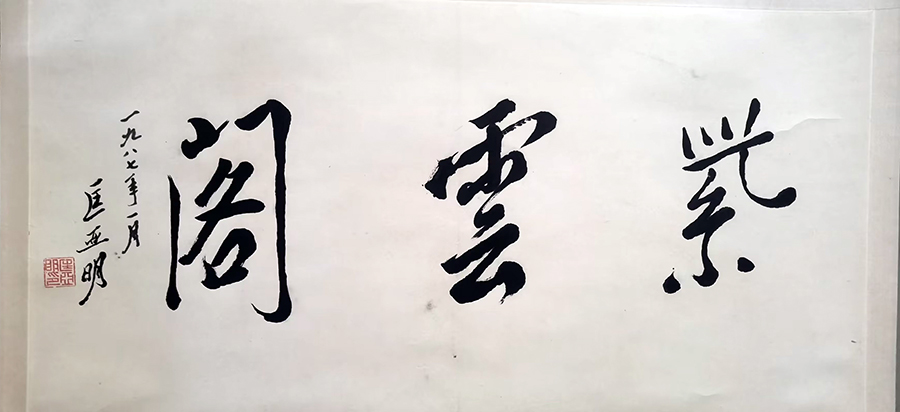 紫雲閣
一九八七年一月
匡亚明